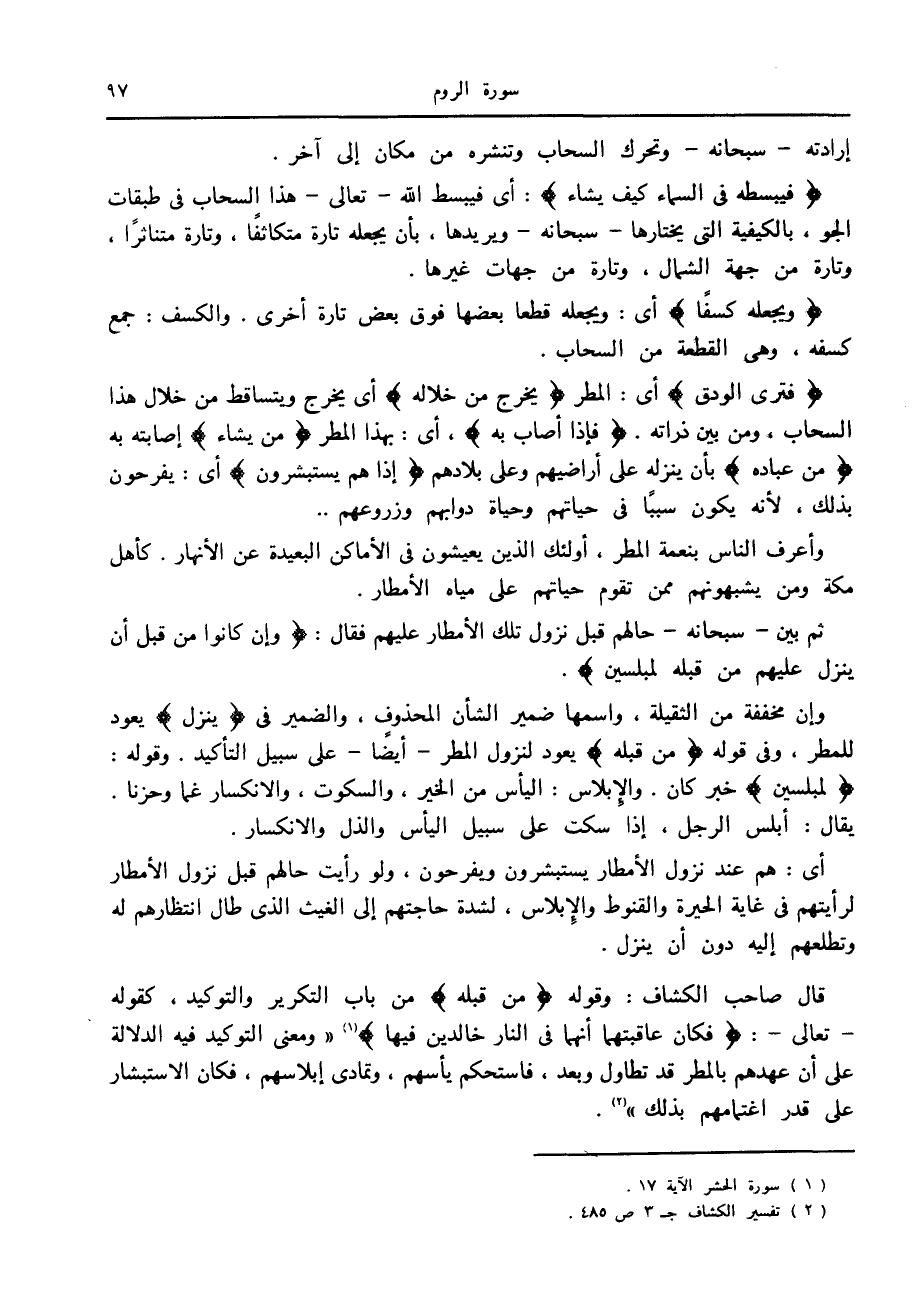 سورة الروم ٩٧
إرادته - سبحانه - وتحرك السحاب وتنشره من مكان إلى آخر .
﴿ فيبسطه فى السماء كيف يشاء ﴾ : أى فيبسط الله - تعالى - هذا السحاب فى طبقات
الجو ، بالكيفية التى يختارها - سبحانه - ويريدها ، بأن يجعله تارة متكاثفًا ، وتارة متناثرًا ،
وتارة من جهة الشمال ، وتارة من جهات غيرها .
﴿ ويجعله كسفًا ﴾ أى : ويجعله قطعا بعضها فوق بعض تارة أخرى . والكسف : جمع
كسفه ، وهى القطعة من السحاب .
﴿ فترى الودق ﴾ أى : المطر ﴿ يخرج من خلاله ﴾ أى يخرج ويتساقط من خلال هذا
السحاب ، ومن بين ذراته . ﴿ فإذا أصاب به ﴾ ، أى : بهذا المطر ﴿ من يشاء ﴾ إصابته به
﴿ من عباده ﴾ بأن ينزله على أراضيهم وعلى بلادهم ﴿ إذا هم يستبشرون ﴾ أى : يفرحون
بذلك ، لأنه يكون سببًا فى حياتهم وحياة دوابهم وزروعهم ..
وأعرف الناس بنعمة المطر ، أولئك الذين يعيشون فى الأماكن البعيدة عن الأنهار . كأهل
مكة ومن يشبهونهم ممن تقوم حياتهم على مياه الأمطار .
ثم بين - سبحانه - حالهم قبل نزول تلك الأمطار عليهم فقال : ﴿ وإن كانوا من قبل أن
ينزل عليهم من قبله لمبلسين ﴾ .
وإن مخففة من الثقيلة ، واسمها ضمير الشأن المحذوف ، والضمير فى ﴿ ينزل ﴾ يعود
للمطر ، وفى قوله ﴿ من قبله ﴾ يعود لنزول المطر - أيضًا - على سبيل التأكيد . وقوله :
﴿ لمبلسين ﴾ خبر كان . والإبلاس : اليأس من الخير ، والسكوت ، والانكسار غما وحزنا .
يقال : أبلس الرجل ، إذا سكت على سبيل اليأس والذل والانكسار .
أى : هم عند نزول الأمطار يستبشرون ويفرحون ، ولو رأيت حالهم قبل نزول الأمطار
لرأيتهم فى غاية الحيرة والقنوط والإبلاس ، لشدة حاجتهم إلى الغيث الذى طال انتظارهم له
وتطلعهم إليه دون أن ينزل .
قال صاحب الكشاف : وقوله ﴿ من قبله ﴾ من باب التكرير والتوكيد ، كقوله
- تعالى - : ﴿ فكان عاقبتهما أنهما فى النار خالدين فيها ﴾(١) « ومعنى التوكيد فيه الدلالة
على أن عهدهم بالمطر قد تطاول وبعد ، فاستحكم يأسهم ، وتمادى إبلاسهم ، فكان الاستبشار
على قدر اغتمامهم بذلك »(٢) .
( ١ ) سورة الحشر الآية ١٧ .
( ٢ ) تفسير الكشاف جـ ٣ ص ٤٨٥ .